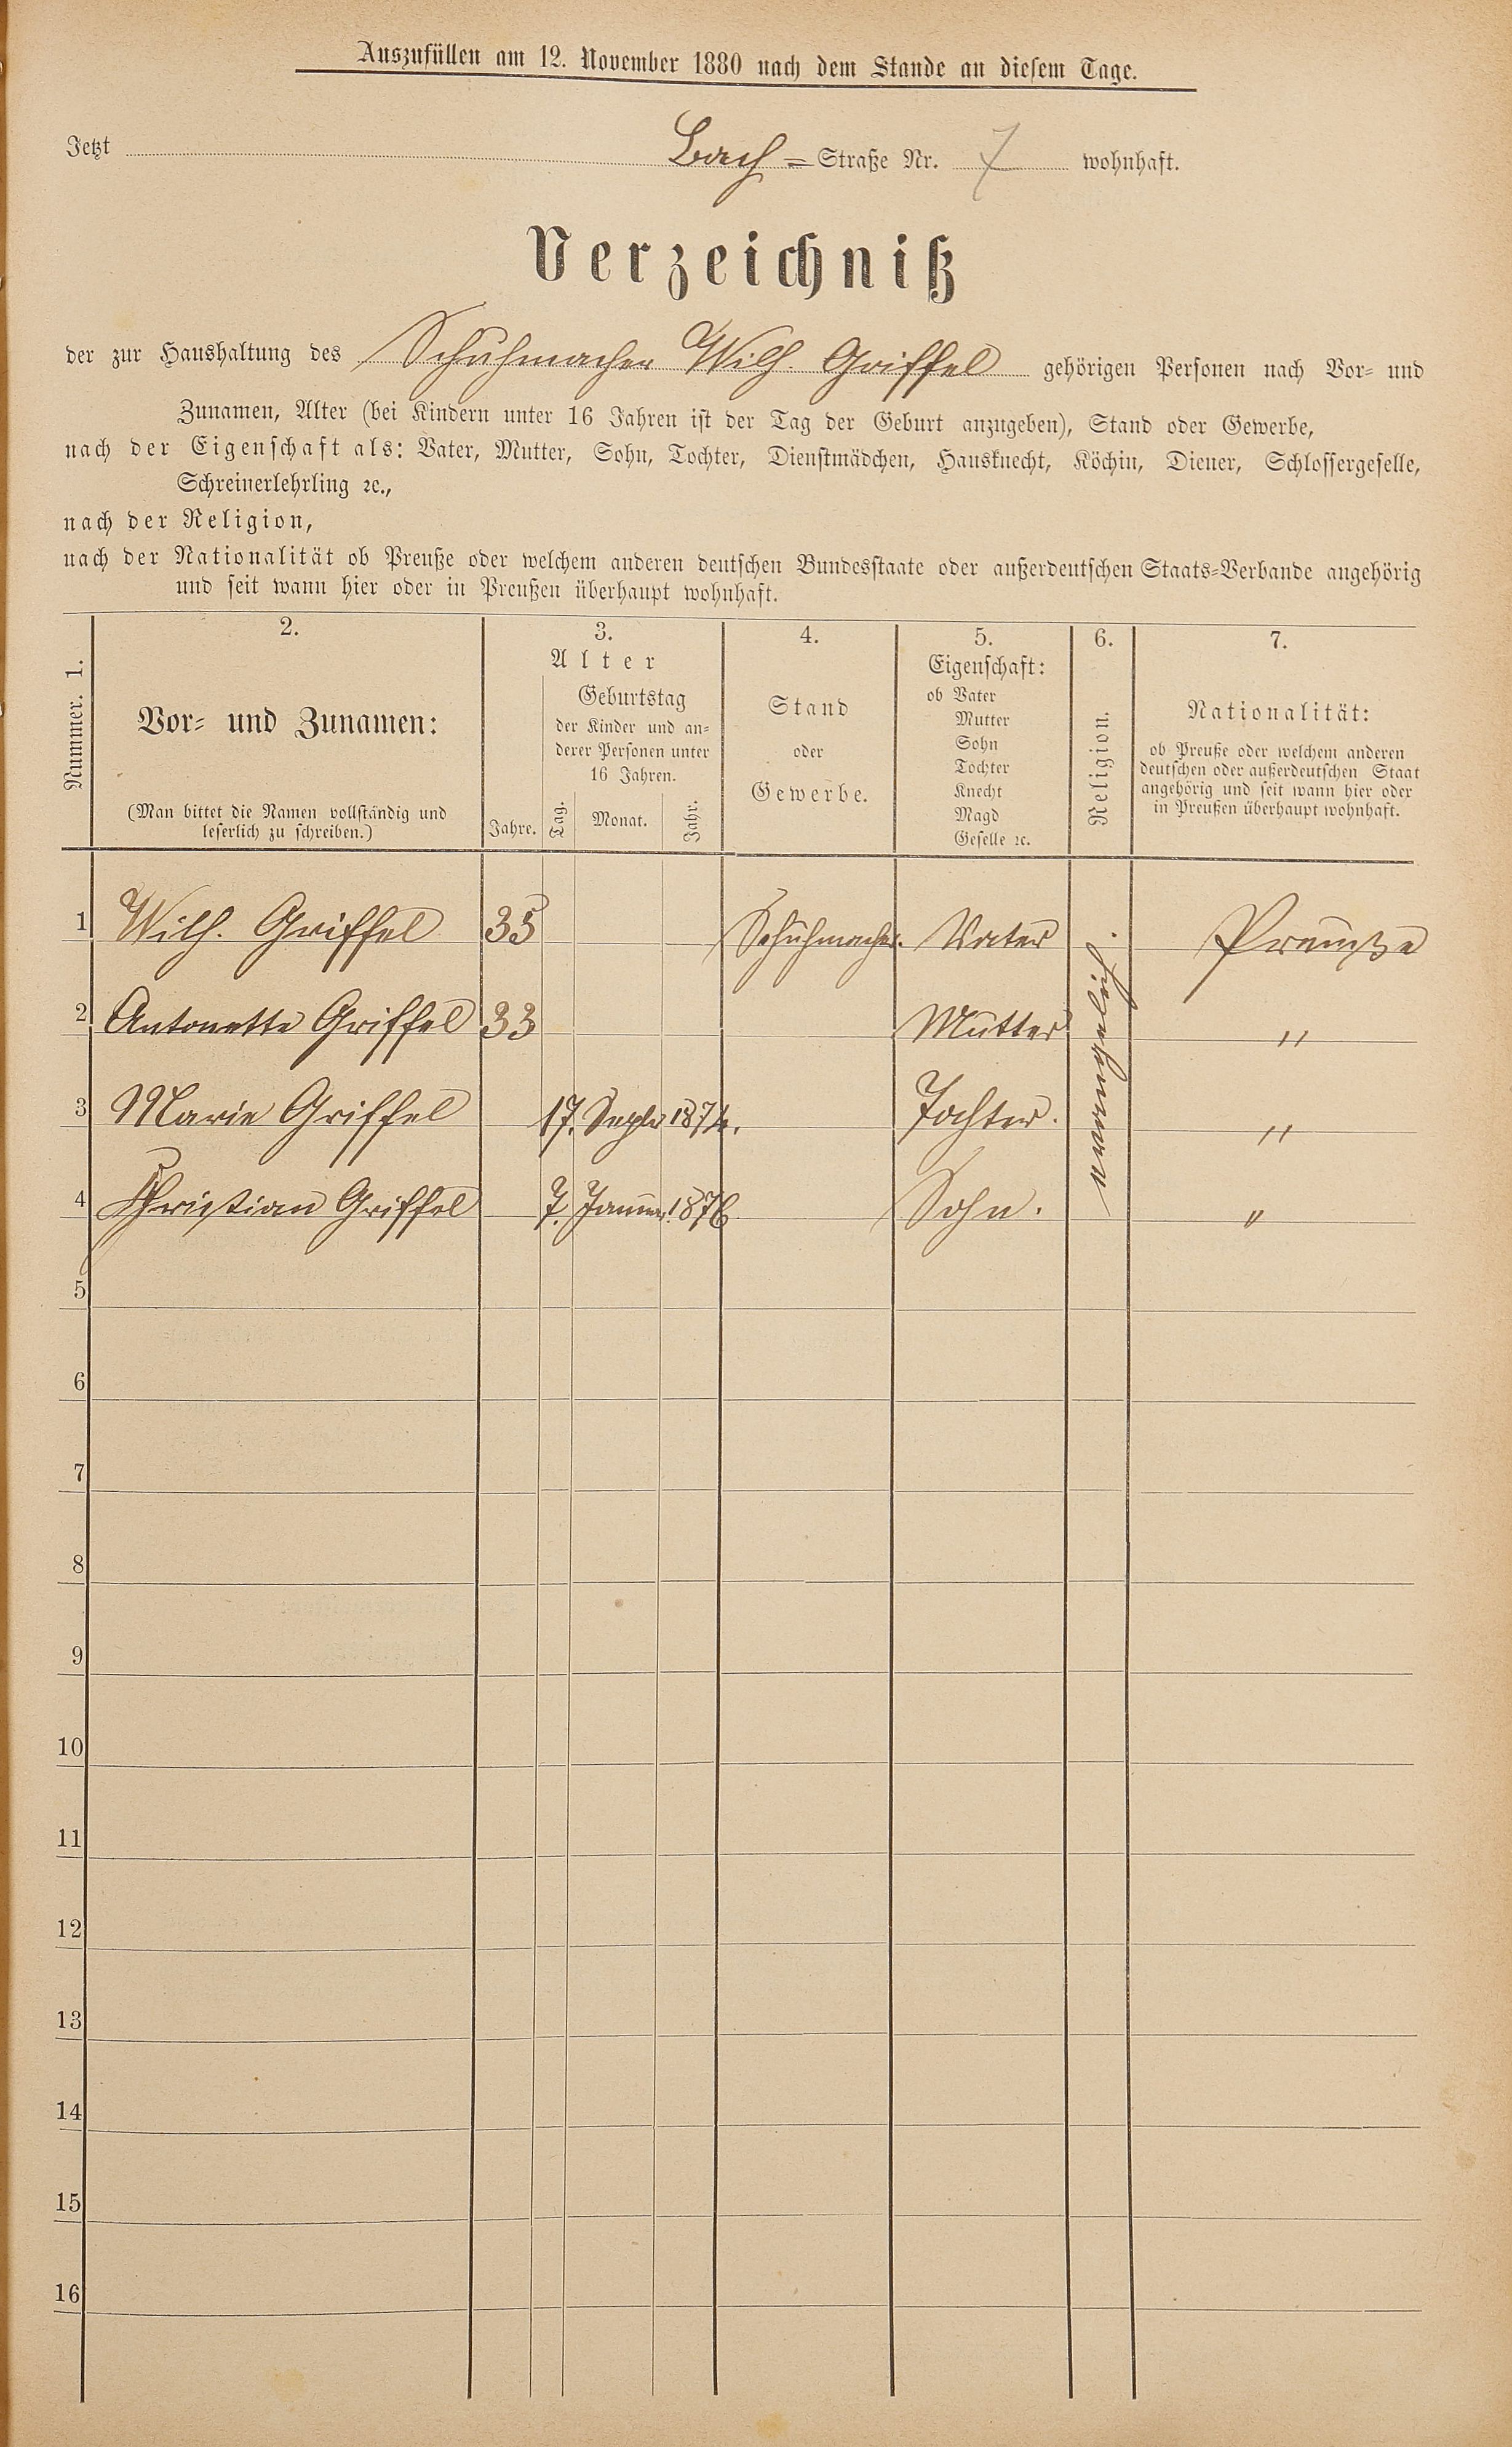 Auszufüllen am 12. November 1880 nach dem Stande an diesem Tage.
Jetzt Bach = Straße Nr. 7 wohnhaft.
Verzeichniß
der zur Haushaltung des Schuhmacher Wilh. Griffel gehörigen Personen nach Vor- und
Zunamen, Alter (bei Kindern unter 16 Jahren ist der Tag der Geburt anzugeben), Stand oder Gewerbe,
nach der Eigenschaft als: Vater, Mutter, Sohn, Tochter, Dienstmädchen, Hausknecht, Köchin, Diener, Schlossergeselle,
Schreinerlehrling ꝛc.,
nach der Religion,
nach der Nationalität ob Preuße oder welchem anderen deutschen Bundesstaate oder außerdeutschen Staats-Verbande angehörig
und seit wann hier oder in Preußen überhaupt wohnhaft.
Nummer. 1.
2.
Vor- und Zunamen:
(Man bittet die Namen vollständig und
leserlich zu schreiben.)
3.
Alter
Jahre.
Geburtstag
der Kinder und an-
derer Personen unter
16 Jahren.
Tag. Monat. Jahr.
4.
Stand
oder
Gewerbe.
5.
Eigenschaft:
ob Vater
Mutter
Sohn
Tochter
Knecht
Magd
Geselle ꝛc.
6.
Religion.
7.
Nationalität:
ob Preuße oder welchem anderen
deutschen oder außerdeutschen Staat
angehörig und seit wann hier oder
in Preußen überhaupt wohnhaft.
1 Wilh. Griffel 35 Schuhmacher. Vater Preuße
2 Antonette Griffel 33 Mutter "
3 Marie Griffel 17. Septr 1874. Tochter. "
4 Christian Griffel 7. Januar 1876. Sohn. "
evangelisch.
5
6
7
8
9
10
11
12
13
14
15
16